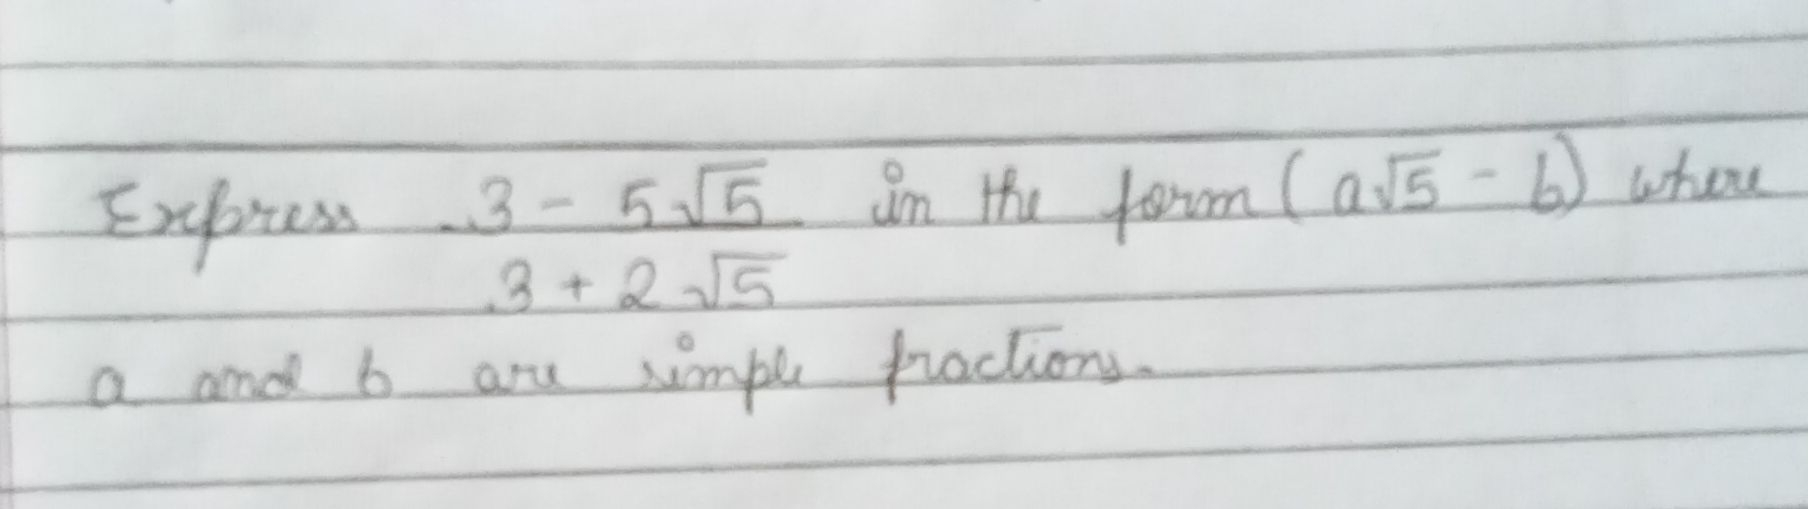 Express 3 - 5√5 in the form (a√5 - b) where
3 + 2√5
a and b are simple fractions.